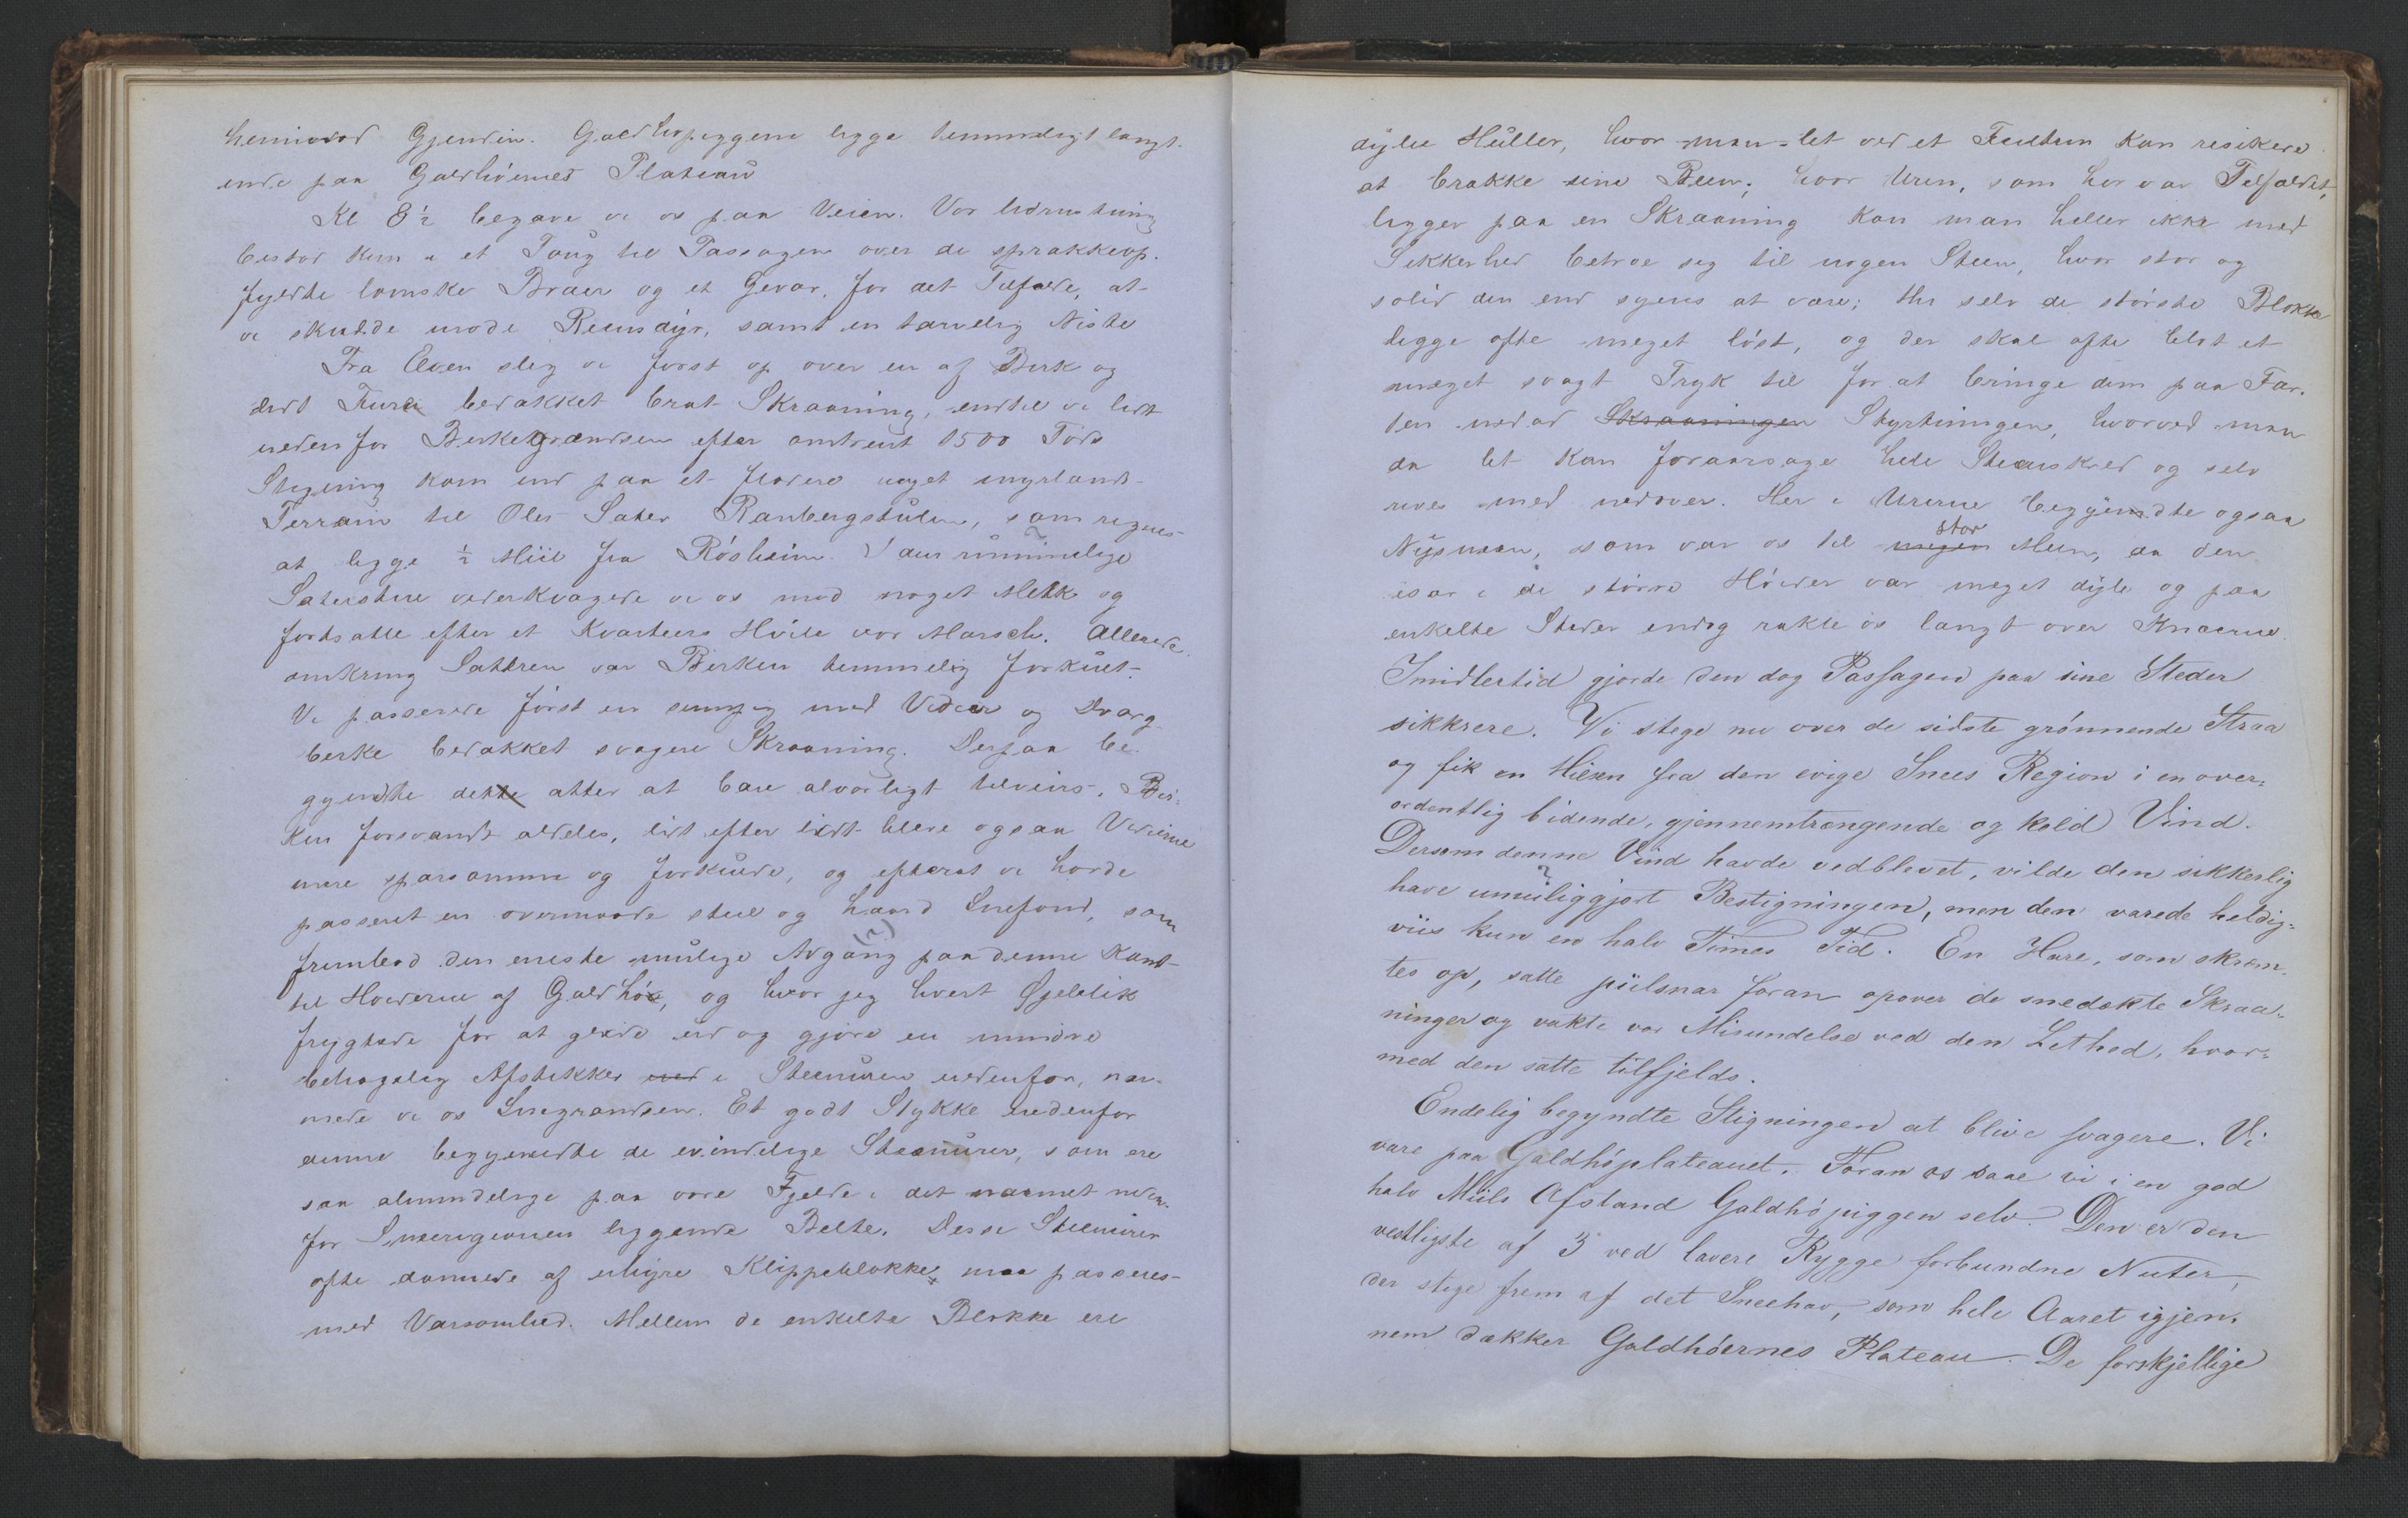 henimod Gjendin. Galdhøpiggene ligge temmeligt langt
inde paa Galdhöernes Plateau
Kl 8½ begave vi os paa Veien. Vor Udrustning
bestod kun i et Toug til Passagen over de sprækkeop-
fyldte lomske Bræer og et Gevær, for det Tilfælde, at
vi skulde møde Reensdyr, samt en tarvelig Niste
Fra Elven steg vi først op over en af Birk og
lidt Furu bedækket brat Skraaning, indtil vi lidt
nedenfor Birkegrændsen efter omtrent 1500 Fods
Stigning kom ind paa et fladere noget myrlændt
Terrain til Oles Sæter Raubergstulen, som regnes
at ligge ½ Miil fra Røsheim. I den rummelige
Sæterstue vederkvægede vi os med noget Melk og
fortsatte efter et Kvarteers Hvile vor Marsch. Allerede
omkring Sætren var Birken temmelig forkuet.
Vi passerede først en sumpig med Vidier og Dværg-
birke bedækket svagere Skraaning. Derpaa be-
gyndte det atter at bære alvorligt tilveirs. Bir-
ken forsvandt aldeles, lidt efter lidt bleve ogsaa Vidierne
mere sparsomme og forkuede, og efterat vi havde
passeret en overmaade steil og haard Snefond, som
frembød den eneste mulige Adgang (?) paa denne Kant
til Høiderne af Galdhø, og hvor jeg hvert Øieblik
frygtede for at glide ud og gjøre en mindre
behagelig Afstikker ned i Steenuren nedenfor, nær-
mede vi os Snegrændsen. Et godt Stykke nedenfor
denne begyndte de evindelige Steenurer, som ere
saa almindelige paa vore Fjelde i det nærmest neden-
for Sneregionen liggende Belte. Disse Steenurer
ofte dannede af uhyre Klippeblokke, maa passeres
med Varsomhed. Mellem de enkelte Blokke ere
dybe Huller, hvor man let ved et Feiltrin kan risikere
at brække sine Been; hvor Uren, som her var Tilfældet,
ligger paa en Skraaning kan man heller ikke med
Sikkerhed betroe sig til nogen Steen, hvor stor og
solid den end synes at være; thi selv de største Blokke
ligge ofte meget løst, og der skal ofte blot et
meget svagt Tryk til for at bringe dem paa Far-
ten nedad Skraaningen Styrtningen, hvorved man
da let kan foraarsage hele Steenskred og selv
rives med nedover. Her i Urerne begyndte ogsaa
Nysneen, som var os til megen stor Meen, da den
især i de større Høider var meget dyb og paa
enkelte Steder endog rakte os langt over Knæerne.
Imidlertid gjorde den dog Passagen paa sine Steder
sikkrere. Vi stege nu over de sidste grønnende Straa
og fik en Hilsen fra den evige Snees Region i en over-
ordentlig bidende, gjennemtrængende og kold Vind.
Dersom denne Vind havde vedblevet, vilde den sikkerlig
have umuliggjort Bestigningen, men den varede heldig-
viis kun en halv Times Tid. En Hare, som skræm-
tes op, satte piilsnar foran opover de snedækte Skraa-
ninger og vakte vor Misundelse ved den Lethed, hvor-
med den satte tilfjelds.
Endelig begyndte Stigningen at blive svagere. Vi
vare paa Galdhøplateauet. Foran os saae vi i en god
halv Miils Afstand Galdhøpiggen selv. Den er den
vestligste af 3 ved lavere Rygge forbundne Nuter,
der stige frem af det Sneehav, som hele Aaret igjen-
nem dækker Galdhöernes Plateau. De forskjellige